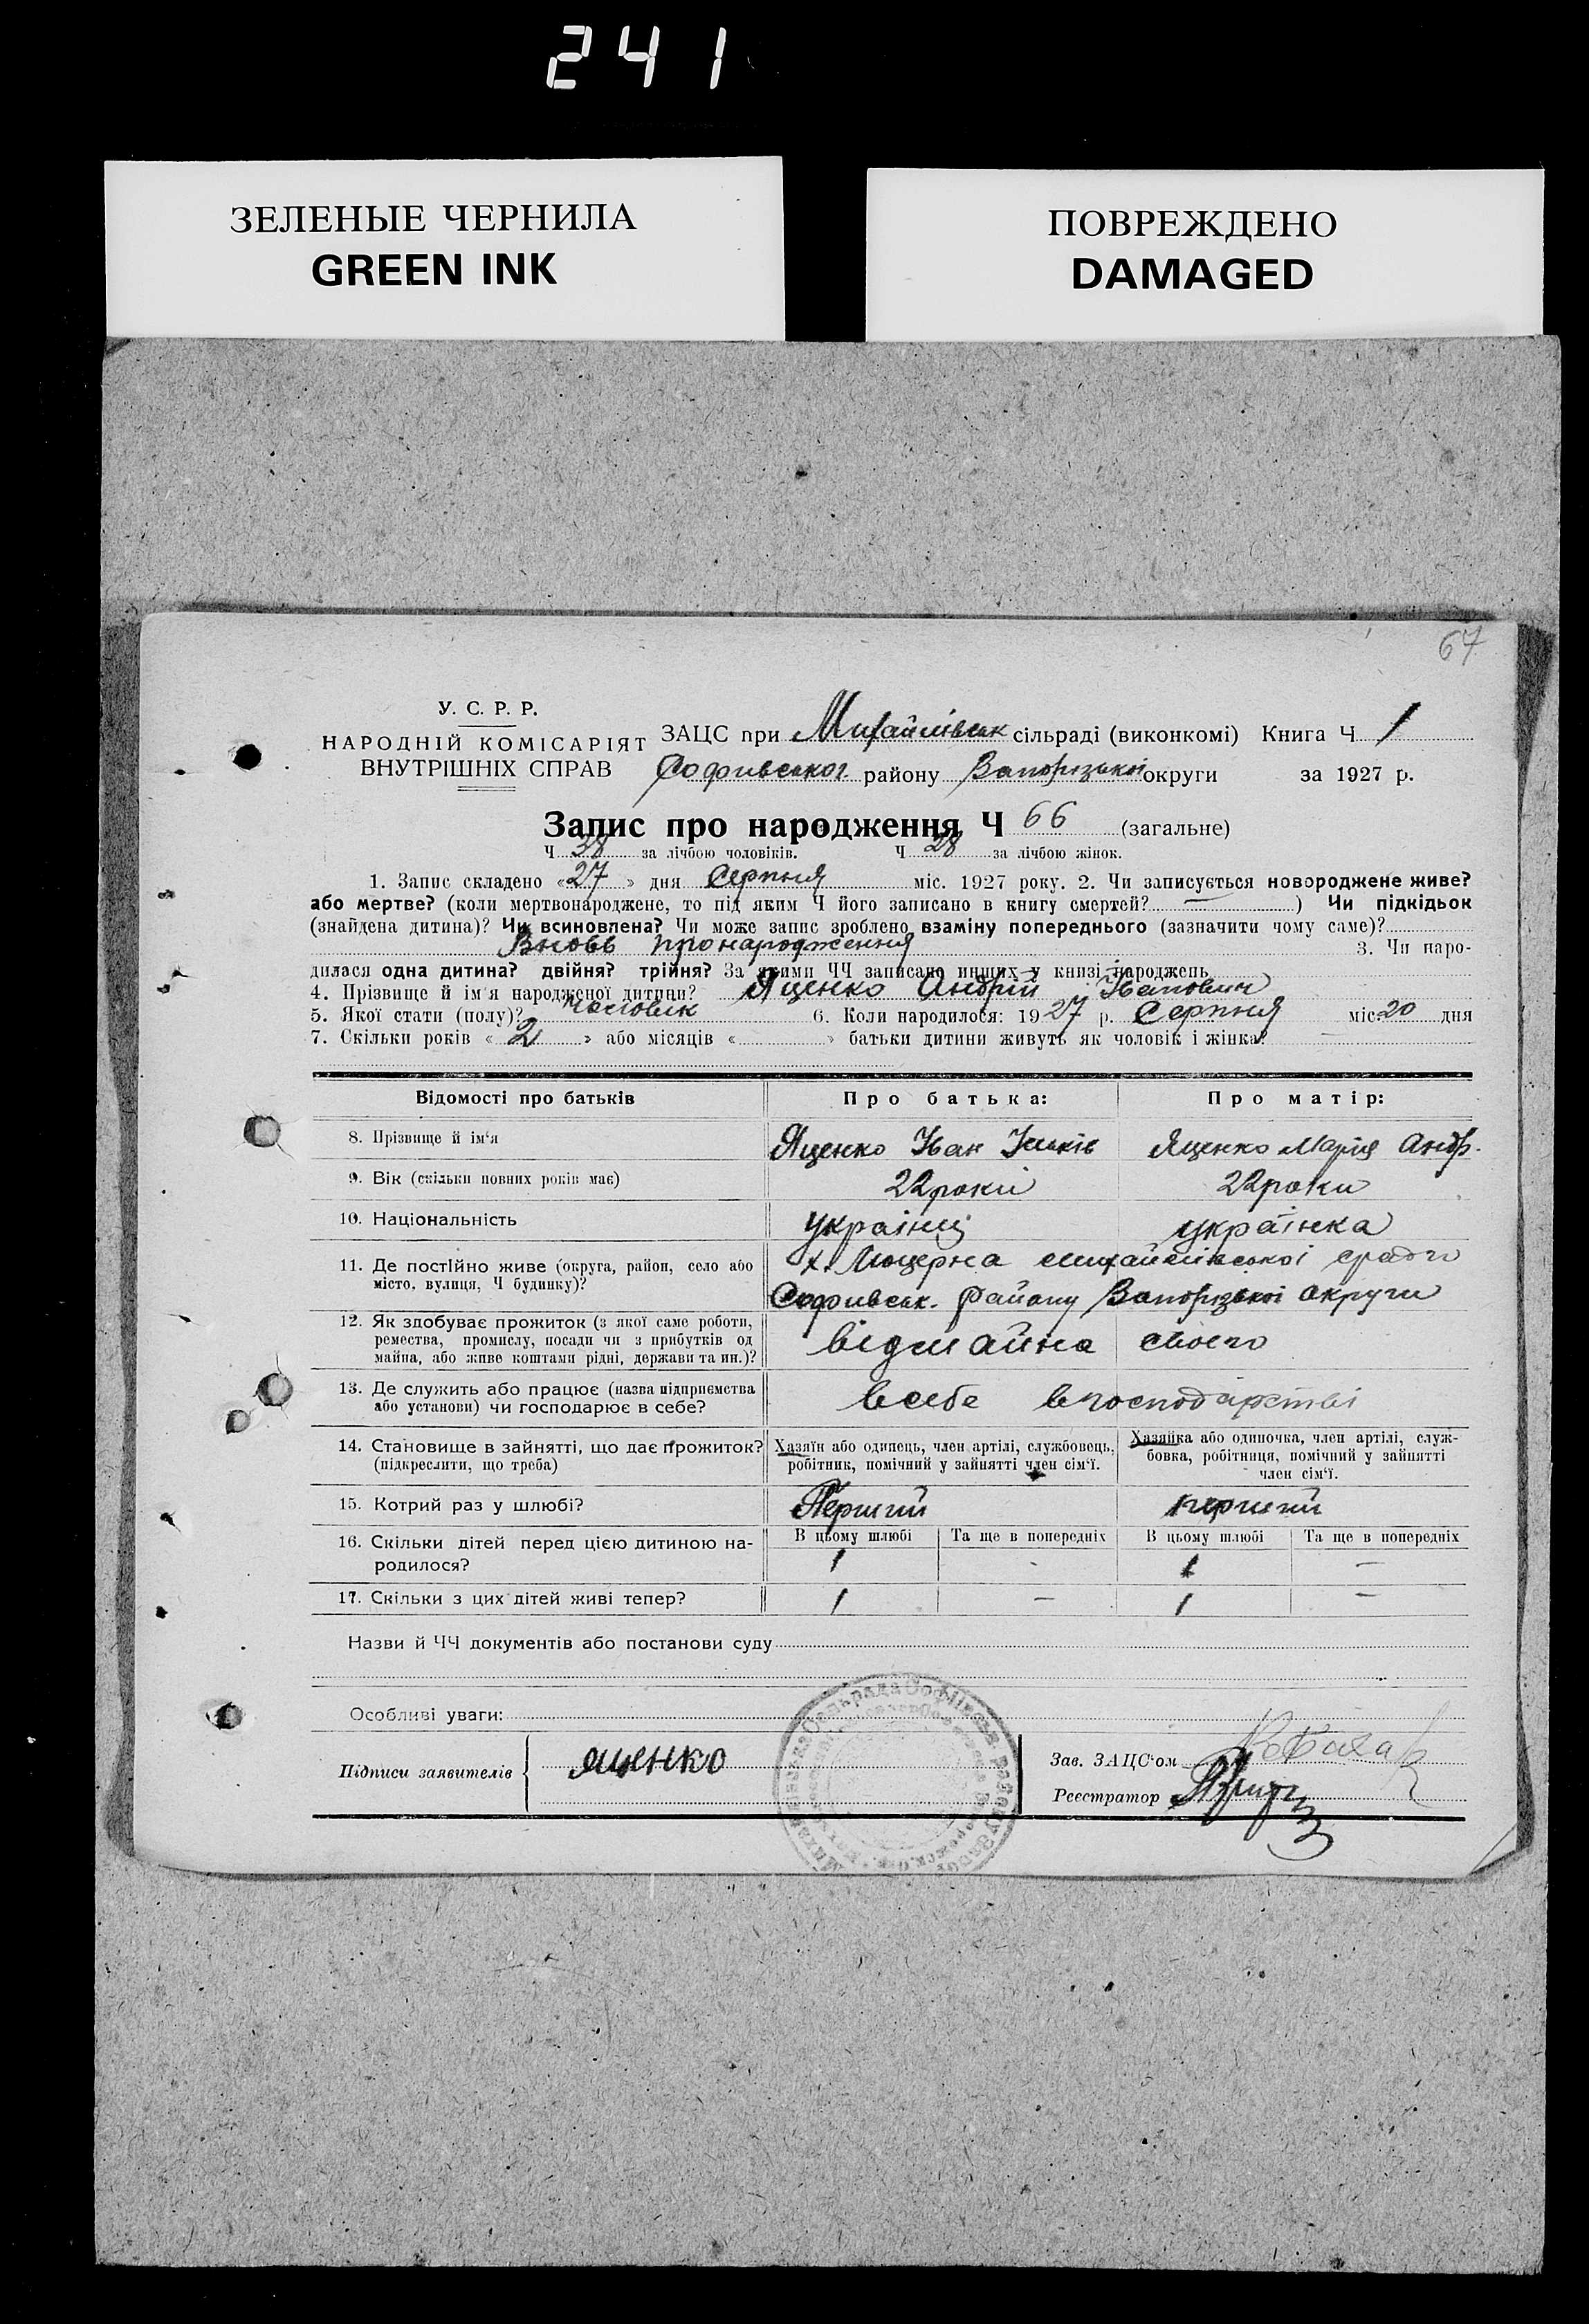 241
ЗЕЛЕНЫЕ ЧЕРНИЛА
GREEN INK
ПОВРЕЖДЕНО
DAMAGED
67
У. С. Р. Р.
НАРОДНІЙ КОМІСАРІЯТ
ВНУТРІШНІХ СПРАВ
ЗАЦС при Михайлівськ сільраді (виконкомі) Книга Ч 1
Софиевської району Запорізької округи за 1927 р.
Запис про народження Ч 66 (загальне)
Ч 38 за лічбою чоловіків. Ч 28 за лічбою жінок.
1. Запис складено «27» дня Серпня міс. 1927 року. 2. Чи записується новороджене живе?
або мертве? (коли мертвонароджене, то під яким Ч його записано в книгу смертей? — ) Чи підкідьок
(знайдена дитина)? Чи всиновлена? Чи може запис зроблено взаміну попереднього (зазначити чому саме)?
Вновь про народження 3. Чи наро-
дилася одна дитина? двійня? трійня? За якими ЧЧ записано инших у книзі народжень
4. Прізвище й ім'я народженої дитини? Яценко Андрій Іванович
5. Якої стати (полу)? чоловік 6. Коли народилося: 1927 р. Серпня міс. 20 дня
7. Скільки років «2» або місяців « » батьки дитини живуть як чоловік і жінка? —
Відомості про батьків Про батька: Про матір:
8. Прізвище й ім‘я Яценко Іван Яценко Марія Андр.
9. Вік (скільки повних років має) 22 роки 22 роки
10. Національність українц українка
11. Де постійно живе (округа, район, село або місто, вулиця, Ч будинку)? х. Люцерна Михайлівської
Софивськ. району Запорізької округи
12. Як здобуває прожиток (з якої саме роботи, ремества, промислу, посади чи з прибутків од майна, або живе коштами рідні, держави та ин.)? від майна своего
13. Де служить або працює (назва підприємства або установи) чи господарює в себе? в себе в господарстві
14. Становище в зайнятті, що дає прожиток? (підкреслити, що треба) Хазяїн або одинець, член артілі, службовець, робітник, помічний у зайнятті член сім‘ї. Хазяйка або одиночка, член артілі, служ-
бовка, робітниця, помічний у зайнятті член сім‘ї.
15. Котрий раз у шлюбі? Перший перший
16. Скільки дітей перед цією дитиною на-
родилося? В цьому шлюбі Та ще в попередніх В цьому шлюбі Та ще в попередніх
1 - 1 —
17. Скільки з цих дітей живі тепер? 1 — 1 —
Назви й ЧЧ документів або постанови суду
Особливі уваги:
Підписи заявителів Яценко
Зав. ЗАЦС‘ом
Реєстратор